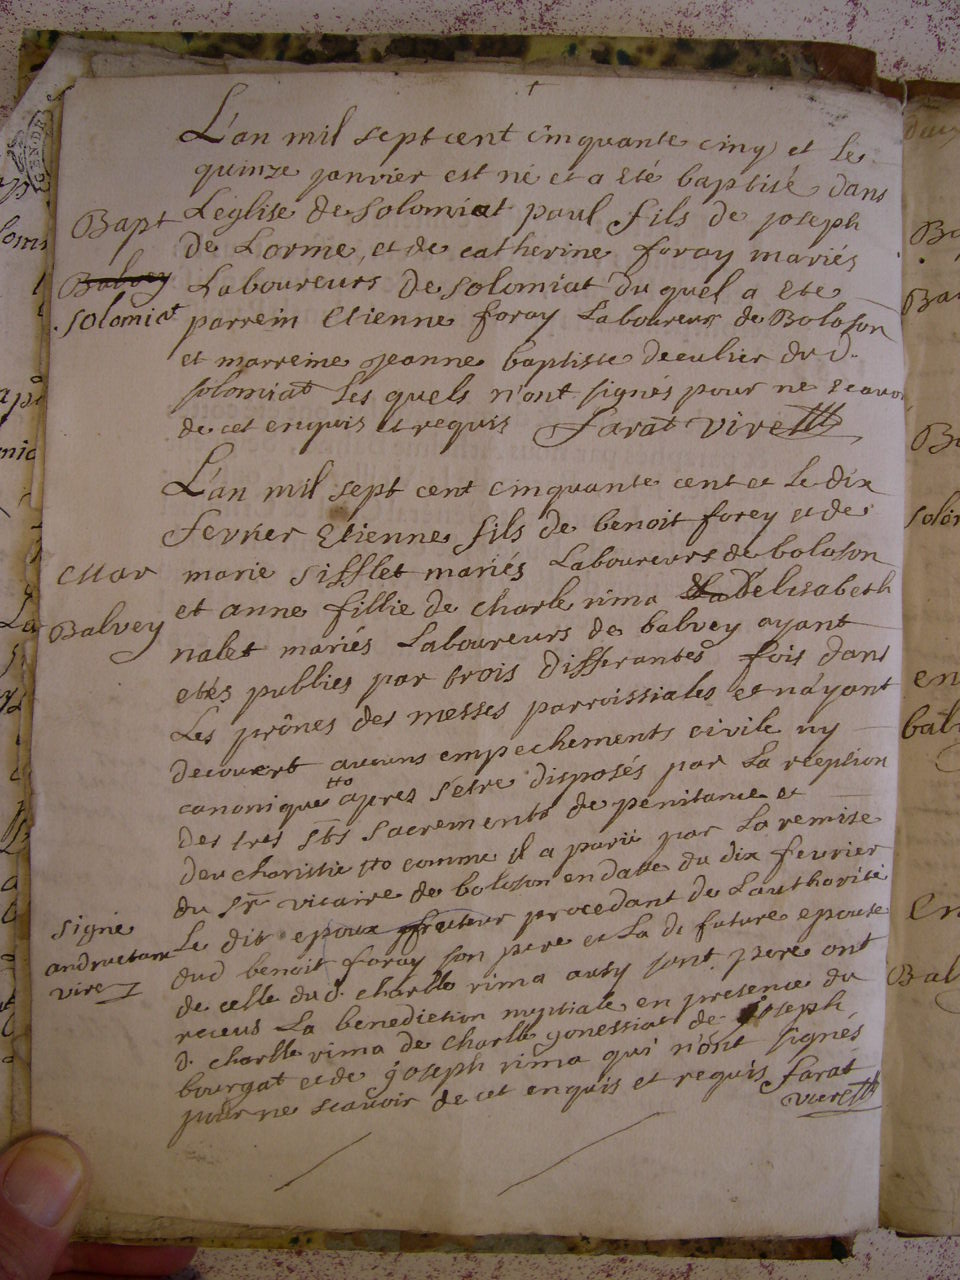 L'an mil sept cent cinquante cinq et le
quinze janvier est né et a eté baptisé dans
Bapt
Leglise de Solomiat paul fils de joseph
de Lorme, et de catherine foray mariés
Balvey
Laboureurs de Solomiat du quel a ete
Solomiat
parrein Etienne foray Laboureur de Boloson
et marreine jeanne baptiste decullier du d.
solomiat Les quels n'ont signés pour ne scavoir
de cet enquis et requis farat vire
L'an mil sept cent cinquante cent et le dix
fevrier Etienne fils de benoit forey et de
Mar
marie sifflet mariés Laboureurs de boloson
et anne fillie de charle rima & d'elisabeth
Balvey
nalet mariés Laboureurs de balvey ayant
etés publies par trois differantes fois dans
Les prônes des messes parroissiales et nayant
decouvert aucuns empechements civile ny
canonique apres s'etre disposés par La reception
des tres sts sacrements de penitance et
deucharistie comme il a parii par La remise
du Sr. vicaire de boloson en date du dix fevrier
Le dit epoux procedant de L'authorité
signé
dud benoit foray son pere et La d. future epouse
andruetan
vire
de celle dud. charlle rima ausy sont pere ont
receus La benediction nuptiale en presence du
d. charlle rima de charlle gonessiat de joseph
bourgat et de joseph rima qui n'ont signés
pour ne scavoir de cet enquis et requis farat
vire